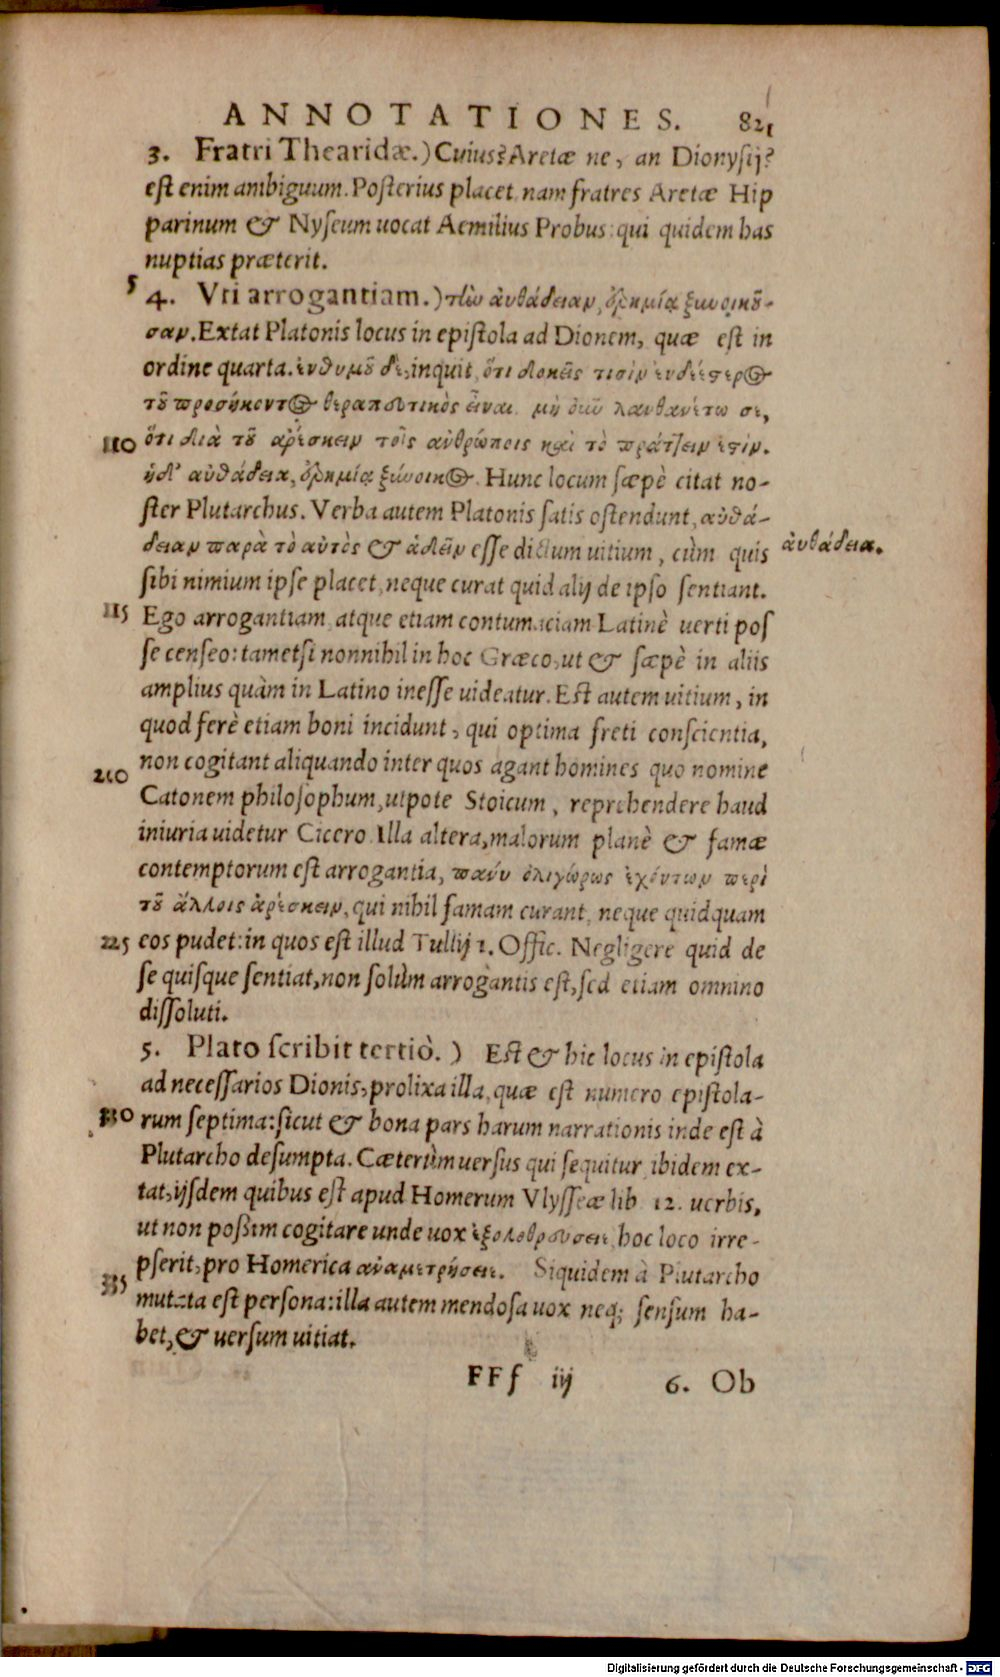 ANNOTATIONES. 821
3. Fratri Thearidæ.) Cuius? Aretæ ne, an Dionysij?
est enim ambiguum. Posterius placet, nam fratres Aretæ Hip
parinum & Nyseum uocat Aemilius Probus: qui quidem has
nuptias præterit.
5
4. Vti arrogantiam.) τὴν ἀυθάδειαν, ἐρημίᾳ ξυνοικοῦ-
σαν. Extat Platonis locus in epistola ad Dionem, quæ est in
ordine quarta. ἐνθυμοῦ δὲ, inquit, ὅτι δοκεῖς τισὶν ἐνδεέστερος
τοῦ προσήκοντος θεραπευτικὸς εἶναι. μὴ οὖν λανθανέτω σε,
110 ὅτι διὰ τοῦ ἀρέσκειν τοῖς ἀνθρώποις καὶ τὸ πράττειν ἐστίν.
ἡδ' αὐθάδεια, ἐρημίᾳ ξύνοικος. Hunc locum sæpè citat no-
ster Plutarchus. Verba autem Platonis satis ostendunt, αὐθά-
δειαν παρὰ τὸ αὐτὸς & ἀδεῖν esse dictum uitium, cùm quis
ἀυθάδεια.
sibi nimium ipse placet, neque curat quid alij de ipso sentiant.
115 Ego arrogantiam atque etiam contumaciam Latinè uerti pos
se censeo: tametsi nonnihil in hoc Græco, ut & sæpè in aliis
amplius quàm in Latino inesse uideatur. Est autem uitium, in
quod ferè etiam boni incidunt, qui optima freti conscientia,
non cogitant aliquando inter quos agant homines quo nomine
210 Catonem philosophum, utpote Stoicum, reprehendere haud
iniuria uidetur Cicero. Illa altera, malorum planè & famæ
contemptorum est arrogantia, πανύ ὀλιγώρως ἐχόντων περὶ
τοῦ ἄλλοις ἀρέσκειν, qui nihil famam curant, neque quidquam
225 eos pudet: in quos est illud Tullij 1. Offic. Negligere quid de
se quisque sentiat, non solùm arrogantis est, sed etiam omnino
dissoluti.
5. Plato scribit tertiò.) Est & hic locus in epistola
ad necessarios Dionis, prolixa illa, quæ est numero epistola-
330 rum septima: sicut & bona pars harum narrationis inde est à
Plutarcho desumpta. Cæterùm uersus qui sequitur ibidem ex-
tat, ijsdem quibus est apud Homerum Vlysseæ lib. 12. uerbis,
ut non possim cogitare unde uox ἐξολοθρεύσειε, hoc loco irre-
pserit, pro Homerica ἀναμετρήσειε. Siquidem à Plutarcho
335 mutata est persona: illa autem mendosa uox neq; sensum ha-
bet, & uersum uitiat.
FFf iij 6. Ob
Digitalisierung gefördert durch die Deutsche Forschungsgemeinschaft - DFG